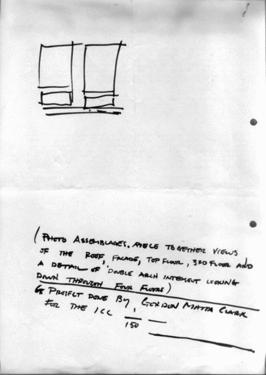 (PHOTO ASSEMBLAGES, PIECE TOGETHER VIEWS
OF THE ROOF, FACADE, TOP FLOOR, 3RD FLOOR AND
A DETAIL OF DOUBLE ARCH INTERSECT LOOKING
DOWN THROUGH FOUR FLOORS)
PROJECT DONE BY, GORDON MATTA CLARK
FOR THE ICC
150